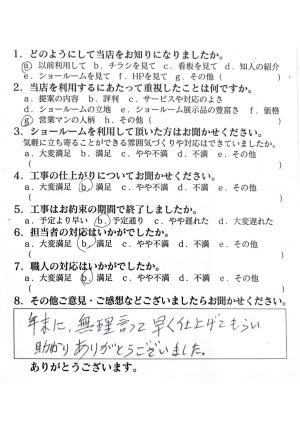 1．どのようにして当店をお知りになりましたか。
a．以前利用して b．チラシを見て c．看板を見て d．知人の紹介
e．ショールームを見て f．HPを見て g．その他（　　　）
2．当店を利用するにあたって重視したことは何ですか。
a．提案の内容 b．評判 c．サービスや対応のよさ
d．ショールームの立地 e．ショールーム展示品の豊富さ f．価格
g．営業マンの人柄 h．その他（　　　）
3．ショールームを利用して頂いた方はお聞かせください。
気軽に立ち寄ることができる雰囲気づくりや対応はできていましたか。
a．大変満足 b．満足 c．やや不満 d．不満 e．その他
（　　　）
4．工事の仕上がりについてお聞かせください。
a．大変満足 b．満足 c．やや不満 d．不満 e．その他
（　　　）
5．工事はお約束の期間で終了しましたか。
a．予定より早い b．予定通り c．やや遅れた d．大変遅れた
6．担当者の対応はいかがでしたか。
a．大変満足 b．満足 c．やや不満 d．不満 e．その他
（　　　）
7．職人の対応はいかがでしたか。
a．大変満足 b．満足 c．やや不満 d．不満 e．その他
（　　　）
8．その他ご意見・ご感想などございましたらお聞かせください。
年末に、無理言って早く仕上げてもらい
助かりありがとうございました。
ありがとうございます。